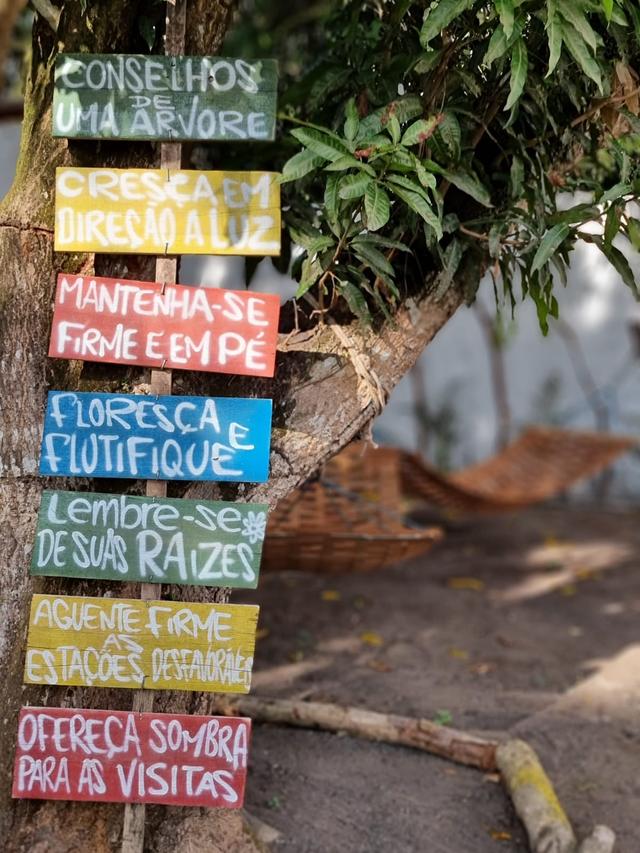 CONSELHOS
DE
UMA ÁRVORE
CRESÇA EM
DIREÇÃO A LUZ
MANTENHA-SE
FIRME E EM PÉ
FLORESÇA E
FLUTIFIQUE
Lembre-se
DE SUAS RAIZES
AGUENTE FIRME
AS
ESTAÇÕES DESFAVORÁVEIS
OFEREÇA SOMBRA
PARA AS VISITAS